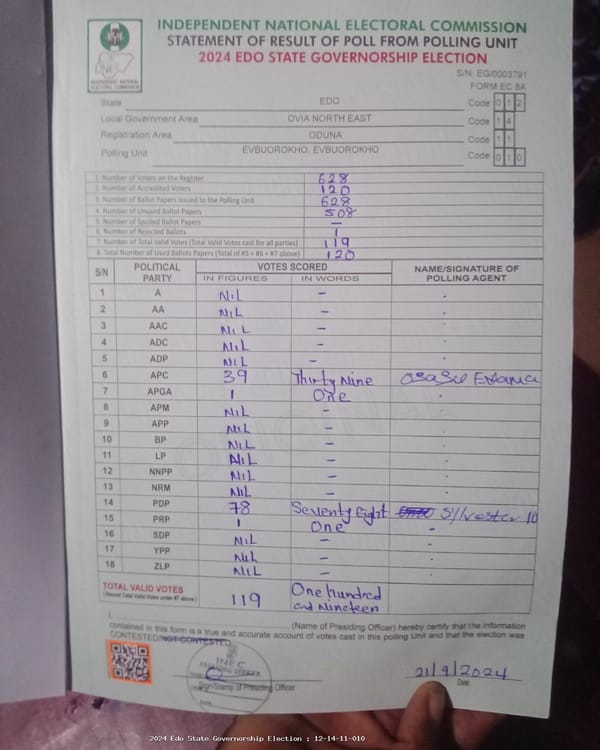 INDEPENDENT NATIONAL ELECTORAL COMMISSION
STATEMENT OF RESULT OF POLL FROM POLLING UNIT
2024 EDO STATE GOVERNORSHIP ELECTION
S/N: EG/0003791
FORM EC 8A
INEC
INDEPENDENT NATIONAL ELECTORAL COMMISSION
State EDO Code 0 1 2
Local Government Area OVIA NORTH EAST Code 1 4
Registration Area ODUNA Code 1 1
Polling Unit EVBUOROKHO, EVBUOROKHO Code 0 1 0
1. Number of Voters on the Register 628
2. Number of Accredited Voters 120
3. Number of Ballot Papers Issued to the Polling Unit 628
4. Number of Unused Ballot Papers 508
5. Number of Spoiled Ballot Papers –
6. Number of Rejected Ballots 1
7. Number of Total Valid Votes (Total Valid Votes cast for all parties) 119
8. Total Number of Used Ballots Papers (Total of #5 + #6 + #7 above) 120
S/N POLITICAL PARTY VOTES SCORED NAME/SIGNATURE OF POLLING AGENT
IN FIGURES IN WORDS
1 A NIL –
2 AA NIL –
3 AAC NIL –
4 ADC NIL –
5 ADP NIL –
6 APC 39 Thirty Nine
7 APGA 1 One
8 APM NIL –
9 APP NIL –
10 BP NIL –
11 LP NIL –
12 NNPP NIL –
13 NRM NIL –
14 PDP 78 Seventy Eight Sylvester
15 PRP 1 One –
16 SDP NIL – –
17 YPP NIL –
18 ZLP NIL –
TOTAL VALID VOTES 119 One hundred and Nineteen
(Record Total Valid Votes under #7 above)
I, (Name of Presiding Officer) hereby certify that the information
contained in this form is a true and accurate account of votes cast in this polling Unit and that the election was
CONTESTED/NOT CONTESTED.
INEC
PRESIDING OFFICER
Sign/Stamp of Presiding Officer
21/9/2024
Date
2024 Edo State Governorship Election : 12-14-11-010